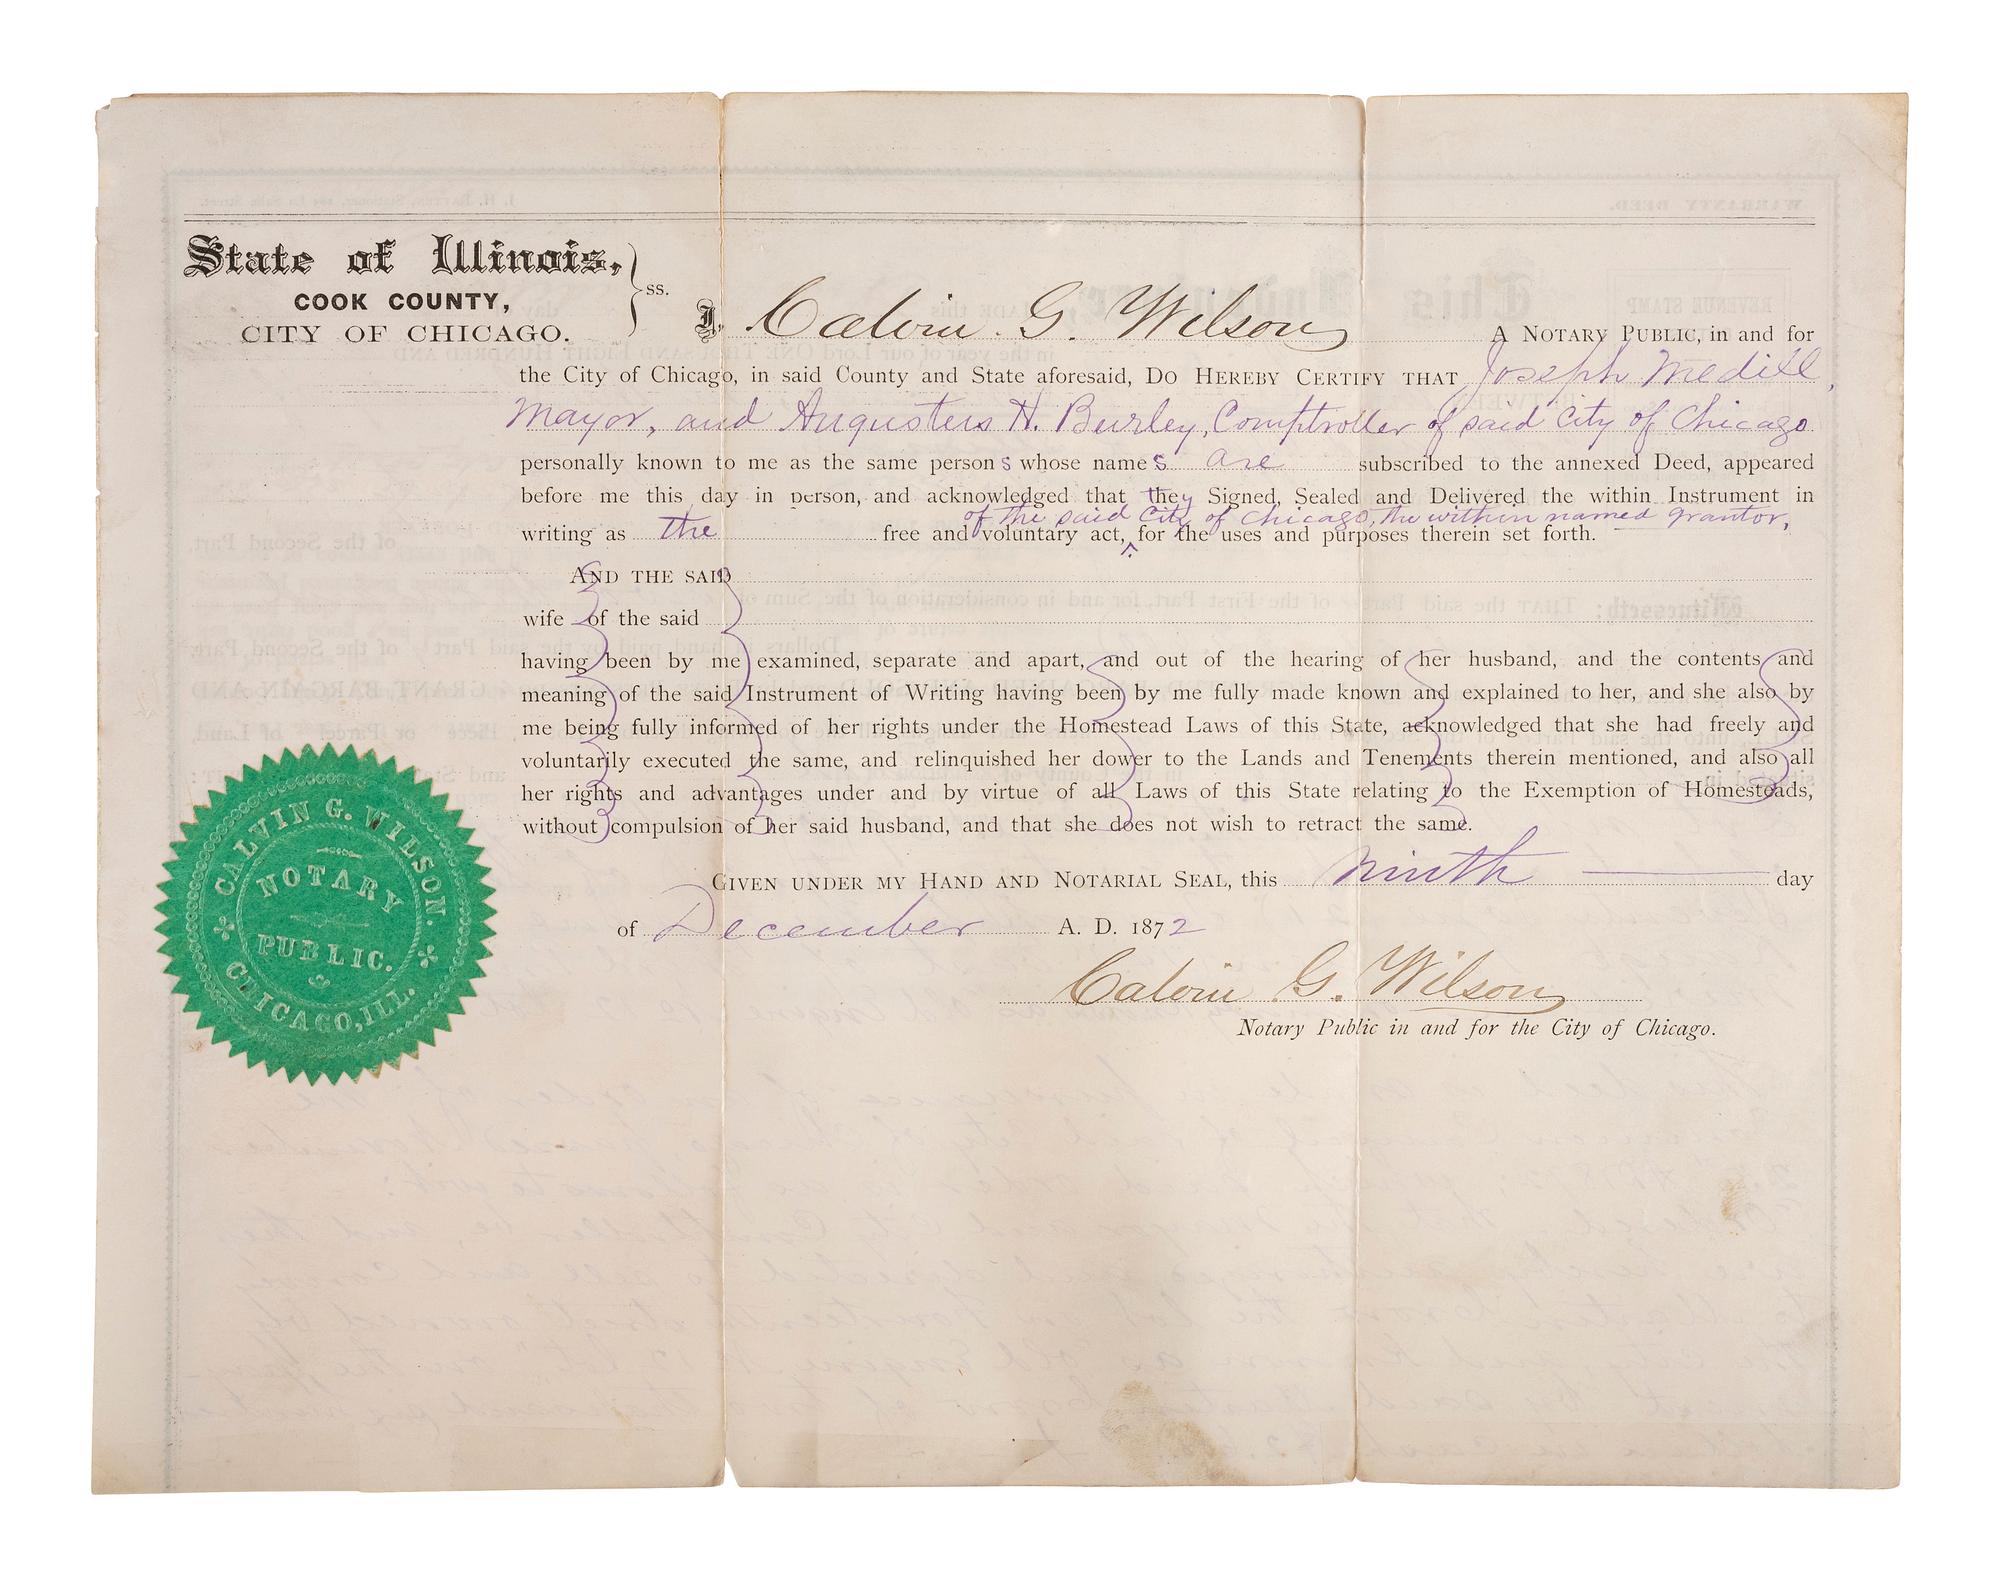 State of Illinois,
COOK COUNTY,
CITY OF CHICAGO.
ss.
I, Calvin G. Wilson A NOTARY PUBLIC, in and for
the City of Chicago, in said County and State aforesaid, DO HEREBY CERTIFY THAT Joseph Medill,
Mayor, and Augustus H. Burley, Comptroller of said City of Chicago
personally known to me as the same persons whose names are subscribed to the annexed Deed, appeared
before me this day in person, and acknowledged that they Signed, Sealed and Delivered the within Instrument in
of the said City of Chicago, the within named grantor,
writing as the free and voluntary act, ^ for the uses and purposes therein set forth.
AND THE SAID
wife of the said
having been by me examined, separate and apart, and out of the hearing of her husband, and the contents and
meaning of the said Instrument of Writing having been by me fully made known and explained to her, and she also by
me being fully informed of her rights under the Homestead Laws of this State, acknowledged that she had freely and
voluntarily executed the same, and relinquished her dower to the Lands and Tenements therein mentioned, and also all
her rights and advantages under and by virtue of all Laws of this State relating to the Exemption of Homesteads,
without compulsion of her said husband, and that she does not wish to retract the same.
GIVEN UNDER MY HAND AND NOTARIAL SEAL, this ninth day
of December A. D. 1872
Calvin G. Wilson
Notary Public in and for the City of Chicago.
CALVIN G. WILSON.
NOTARY
PUBLIC.
CHICAGO, ILL.